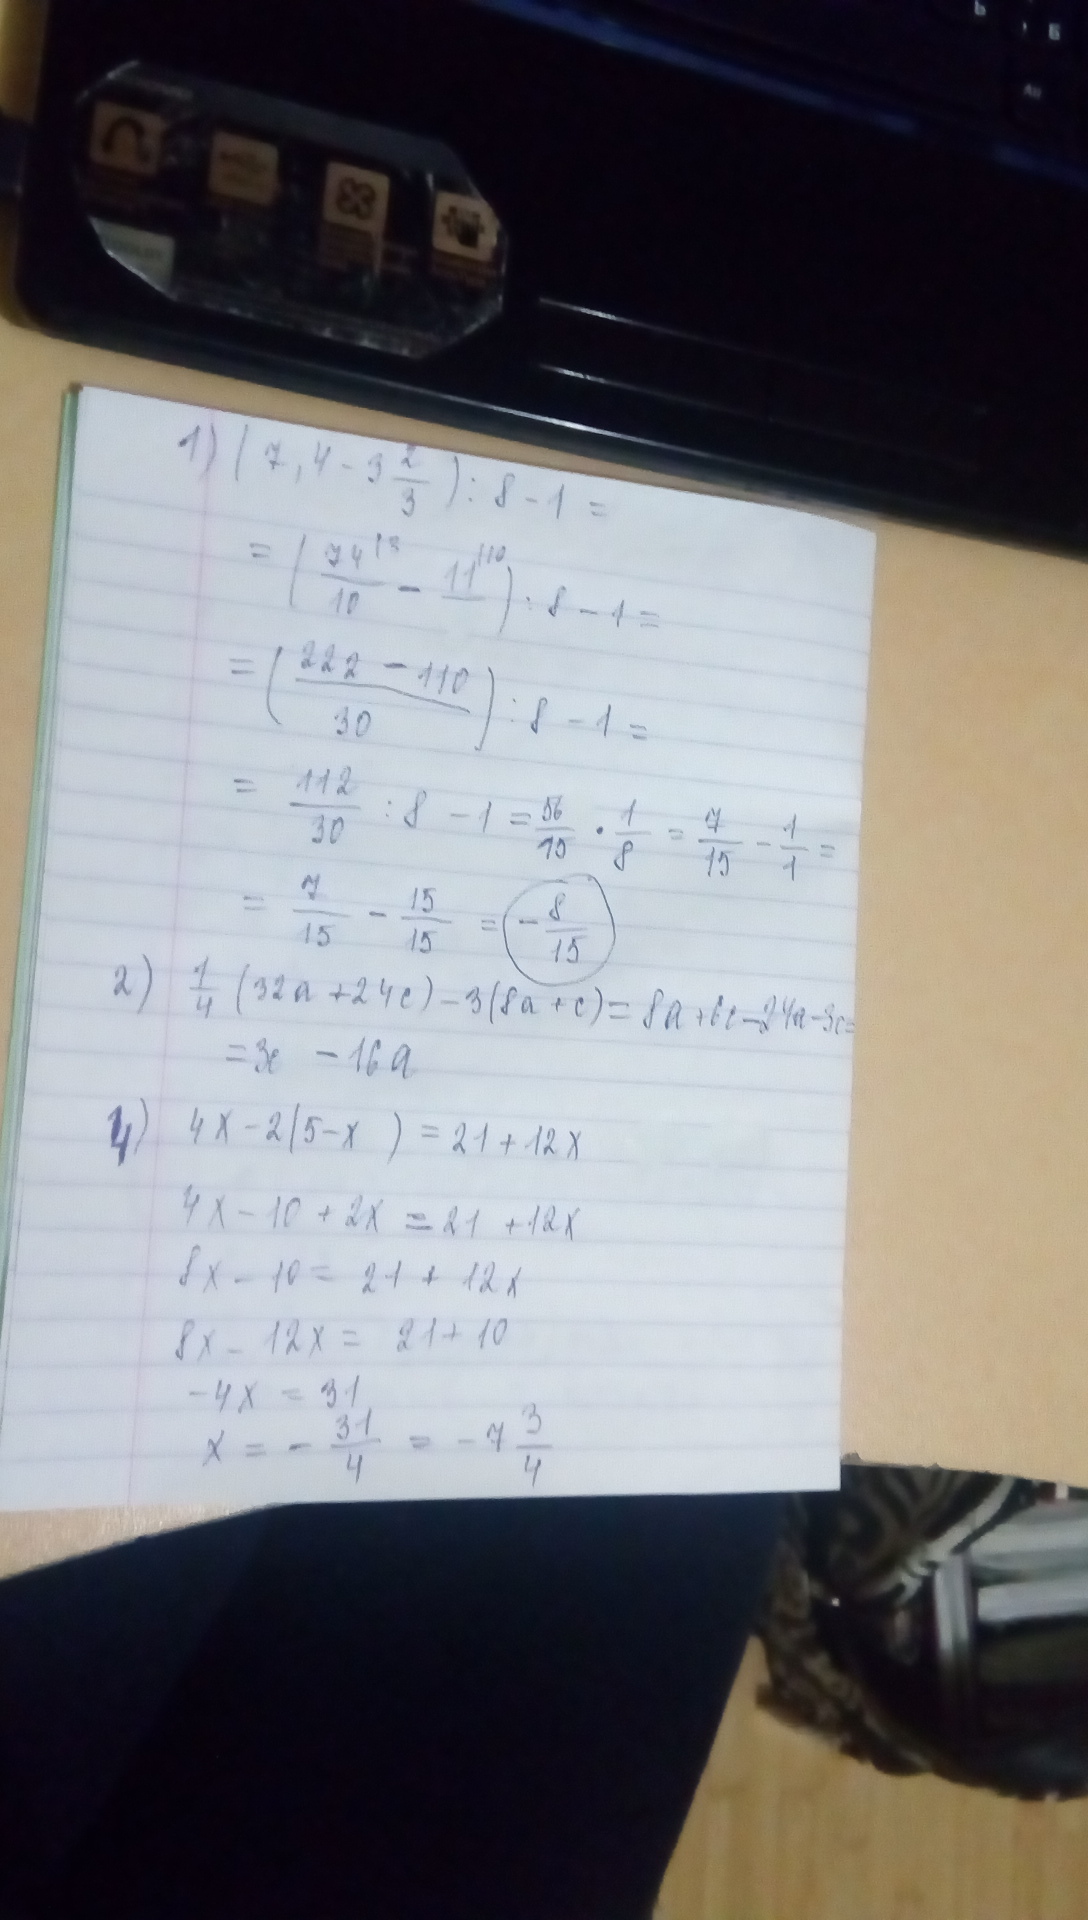 1) (7,4 - 3 2/3) : 8 - 1 =
= (74|3/10 - 11|10/) : 8 - 1 =
= (222 - 110/30) : 8 - 1 =
= 112/30 : 8 - 1 = 56/15 · 1/8 = 7/15 - 1/1 =
= 7/15 - 15/15 = - 8/15
2) 1/4 (32a + 24c) - 3(8a + c) = 8a + 6c - 24a - 3c =
= 3c - 16a
4) 4x - 2(5 - x) = 21 + 12x
4x - 10 + 2x = 21 + 12x
8x - 10 = 21 + 12x
8x - 12x = 21 + 10
-4x = 31
x = - 31/4 = - 7 3/4